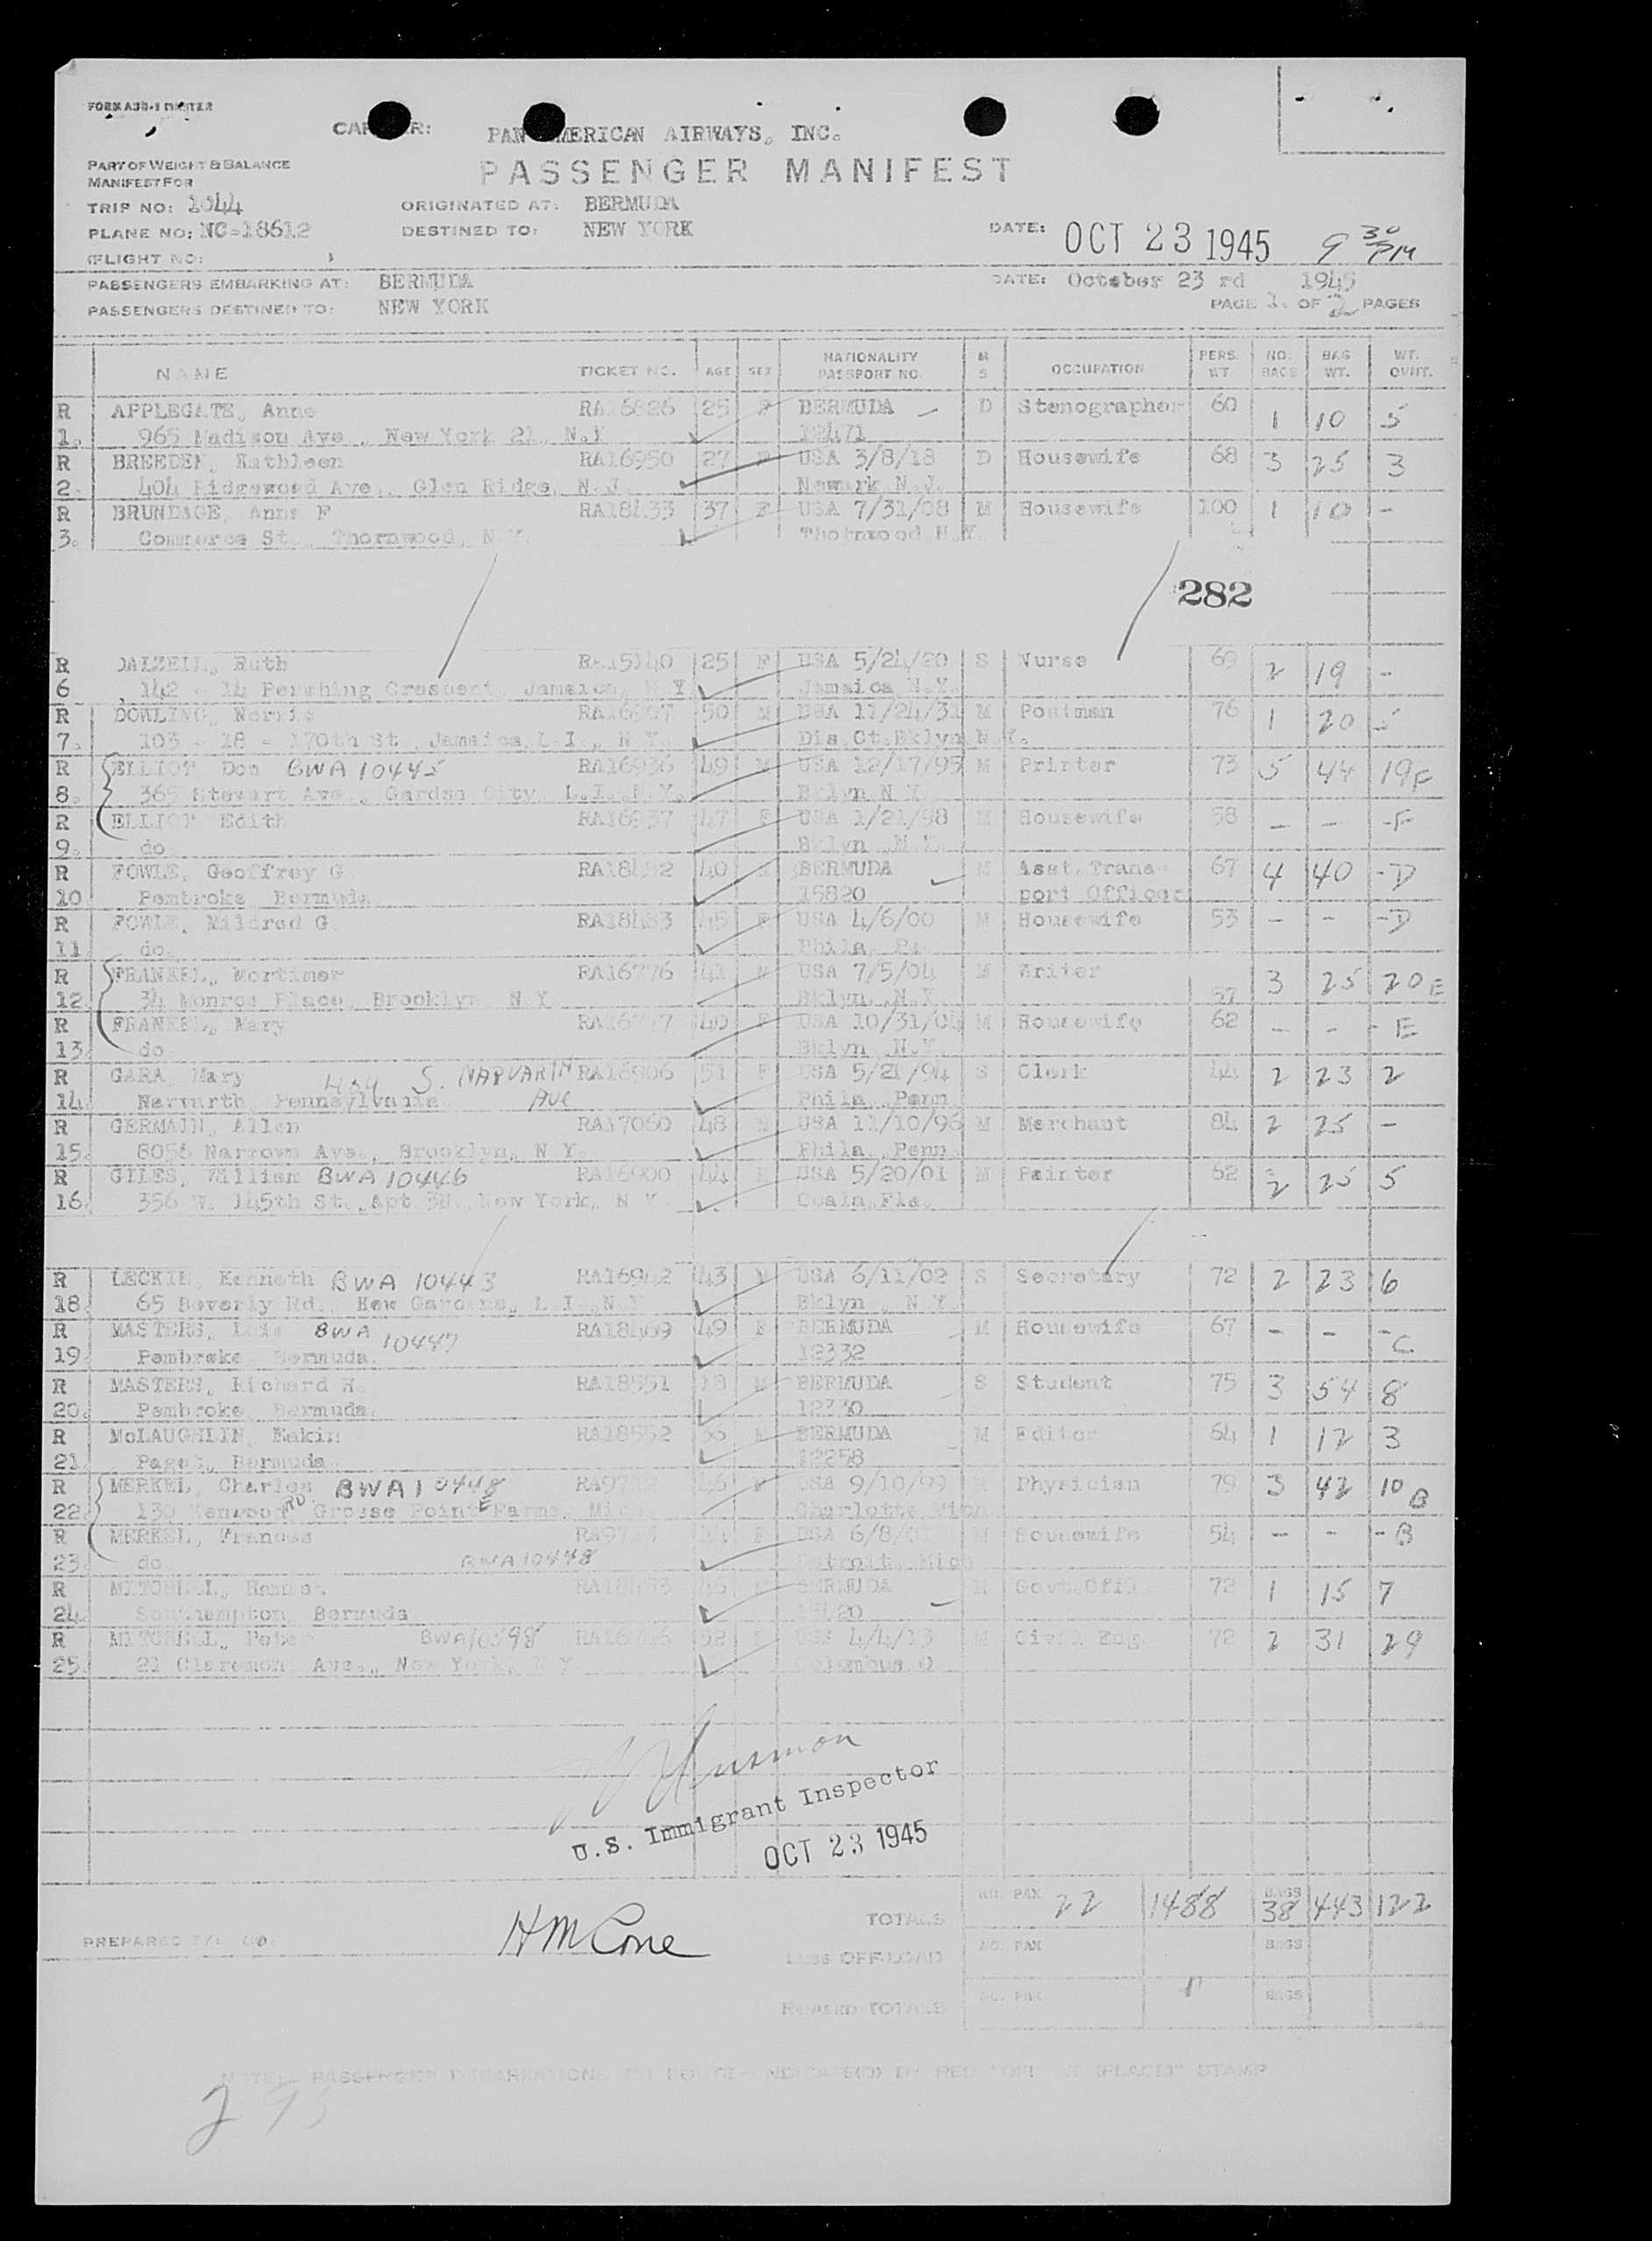 PAN AMERICAN AIRWAYS, INC.
PART OF WEIGHT & BALANCE
MANIFEST FOR
PASSENGER MANIFEST
TRIP NO: 1044 ORIGINATED AT: BERMUDA
PLANE NO: NC-18612 DESTINED TO: NEW YORK DATE: OCT 23 1945 9 30 PM
FLIGHT NO:
PASSENGERS EMBARKING AT: BERMUDA DATE: October 23 rd 1945
PASSENGERS DESTINED TO: NEW YORK PAGE 1. OF 2 PAGES
NAME TICKET NO. AGE SEX NATIONALITY PASSPORT NO. M S OCCUPATION PERS. WT NO. BAGS BAG WT. WT. OVWT.
R APPLEGATE, Anne RA16826 25 F BERMUDA D Stenographer 60 1 10 5
1. 965 Madison Ave., New York 21, N.Y 12471
R BREEDEN, Kathleen RA16950 27 F USA 3/8/18 D Housewife 68 3 25 3
2. 404 Ridgewood Ave., Glen Ridge, N.J. Newark N.J.
R BRUNDAGE, Anna F RA18433 37 F USA 7/31/08 M Housewife 100 1 10 -
3. Commerce St., Thornwood, N.Y. Thornwood N.Y.
282
R DALZELL, Ruth RA15140 25 F USA 5/24/20 S Nurse 69 2 19 -
6 142 - 14 Pershing Crescent, Jamaica, N Y Jamaica N.Y.
R DOWLING, Norris RA16907 50 M USA 11/24/31 M Postman 76 1 20
7. 103 - 18 - 170th St., Jamaica, L.I., N Y. Dis.Ct.Bklyn N.Y.
R ELLIOT, Don BWA 10445 RA16936 49 M USA 12/17/95 M Printer 73 5 44 19F
8. 365 Stewart Ave., Garden City, L.I., N.Y. Bklyn N Y
R ELLIOT, Edith RA16937 47 F USA 1/21/98 M Housewife 58 - - -F
9. do Bklyn N.Y.
R FOWLE, Geoffrey G RA18482 40 M BERMUDA M Asst. Trans- 67 4 40 -D
10 Pembroke, Bermuda 15820 port Officer
R FOWLE, Mildred G RA18483 45 F USA 4/6/00 M Housewife 53 - - -D
11 do Phila. Pa.
R FRANKEL, Mortimer RA16776 41 M USA 7/5/04 M Writer 3 25 20E
12 34 Monroe Place, Brooklyn N Y Bklyn. N.Y. 57
R FRANKEL, Mary RA16777 40 F USA 10/31/04 M Housewife 62 - - - E
13. do Bklyn N.Y.
R GARA, Mary 404 S. NARVARTH RA16906 51 F USA 5/21/94 S Clerk 44 2 23 2
14. Narvarth Pennsylvania AVE Phila. Penn
R GERMAIN, Allen RA17060 48 M USA 11/10/96 M Merchant 84 2 25 -
15. 8056 Narrows Ave., Brooklyn, N Y Phila. Penn
R GILES, William BWA 10446 RA16900 44 M USA 5/20/01 M Painter 62 2 25 5
16. 356 W. 145th St., Apt 3H., New York, N Y Ocala, Fla.
R LECKIE, Kenneth BWA 10443 RA16942 43 M USA 6/11/02 S Secretary 72 2 23 6
18. 65 Beverly Rd., Kew Gardens, L.I., N Y Bklyn., N Y
R MASTERS, BWA 10447 RA18469 49 F BERMUDA M Housewife 67 - - - C
19. Pembroke, Bermuda. 12332
R MASTERS, Richard H. RA18551 18 M BERMUDA S Student 75 3 54 8
20. Pembroke, Bermuda. 12330
R McLAUGHLIN, Eakin RA18552 M BERMUDA M Editor 64 1 12 3
21. Paget, Bermuda 12258
R MERKEL, Charles BWA10448 46 M USA 9/10/99 M Physician 79 3 42 10 B
22. 130 Kenwood RD Grosse PointE Farms, Mich Charlotte Mich
R MERKEL, Frances F USA M Housewife 54 - - - B
23. do BWA10448 Detroit, Mich
R MITCHELL, BERMUDA M Govt. Offl. 72 1 15 7
24. Southampton Bermuda
R MITCHELL, Peter RA16746 32 USA 4/4/13 M Civil Eng. 72 2 31 29
25. 21 Claremont Ave., New York, N Y Columbus O
U.S. Immigrant Inspector
OCT 23 1945
TOTALS NO. PAX 22 1488 BAGS 38 443 122
PREPARED BY: HM Cone
LESS OFF-LOAD NO. PAX BAGS
REVISED TOTALS NO. PAX BAGS